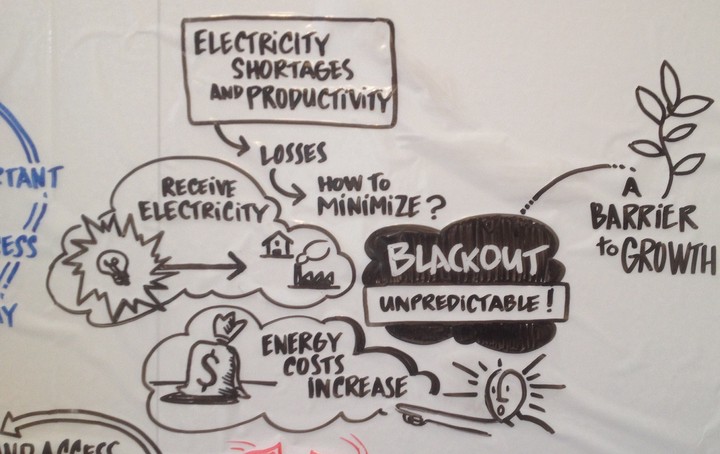 ELECTRICITY
SHORTAGES
AND PRODUCTIVITY
LOSSES
HOW TO
MINIMIZE?
RECEIVE
ELECTRICITY
BLACKOUT
UNPREDICTABLE!
A
BARRIER
to GROWTH
$
ENERGY
COSTS
INCREASE
AND ACCESS